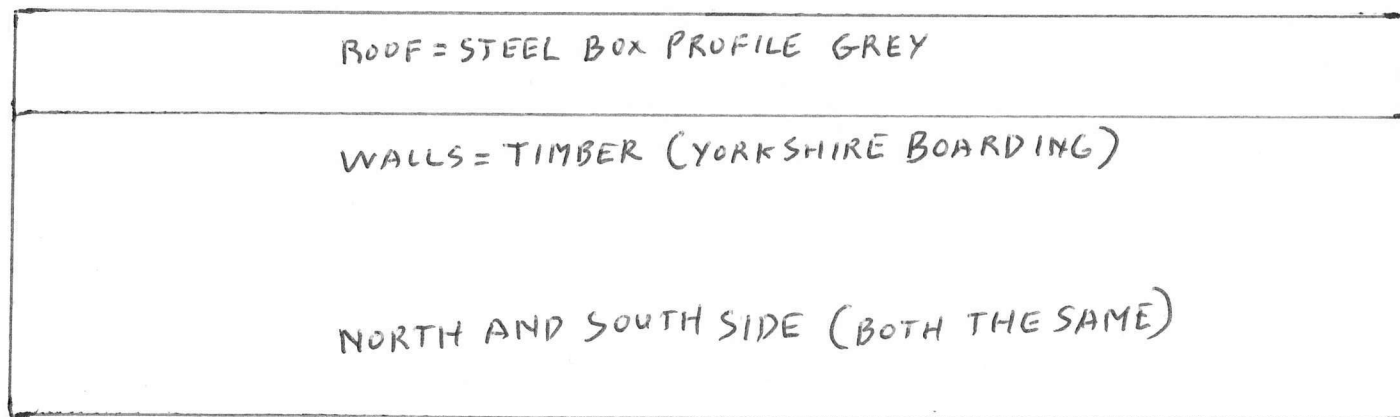 ROOF = STEEL BOX PROFILE GREY
WALLS = TIMBER (YORKSHIRE BOARDING)
NORTH AND SOUTH SIDE (BOTH THE SAME)